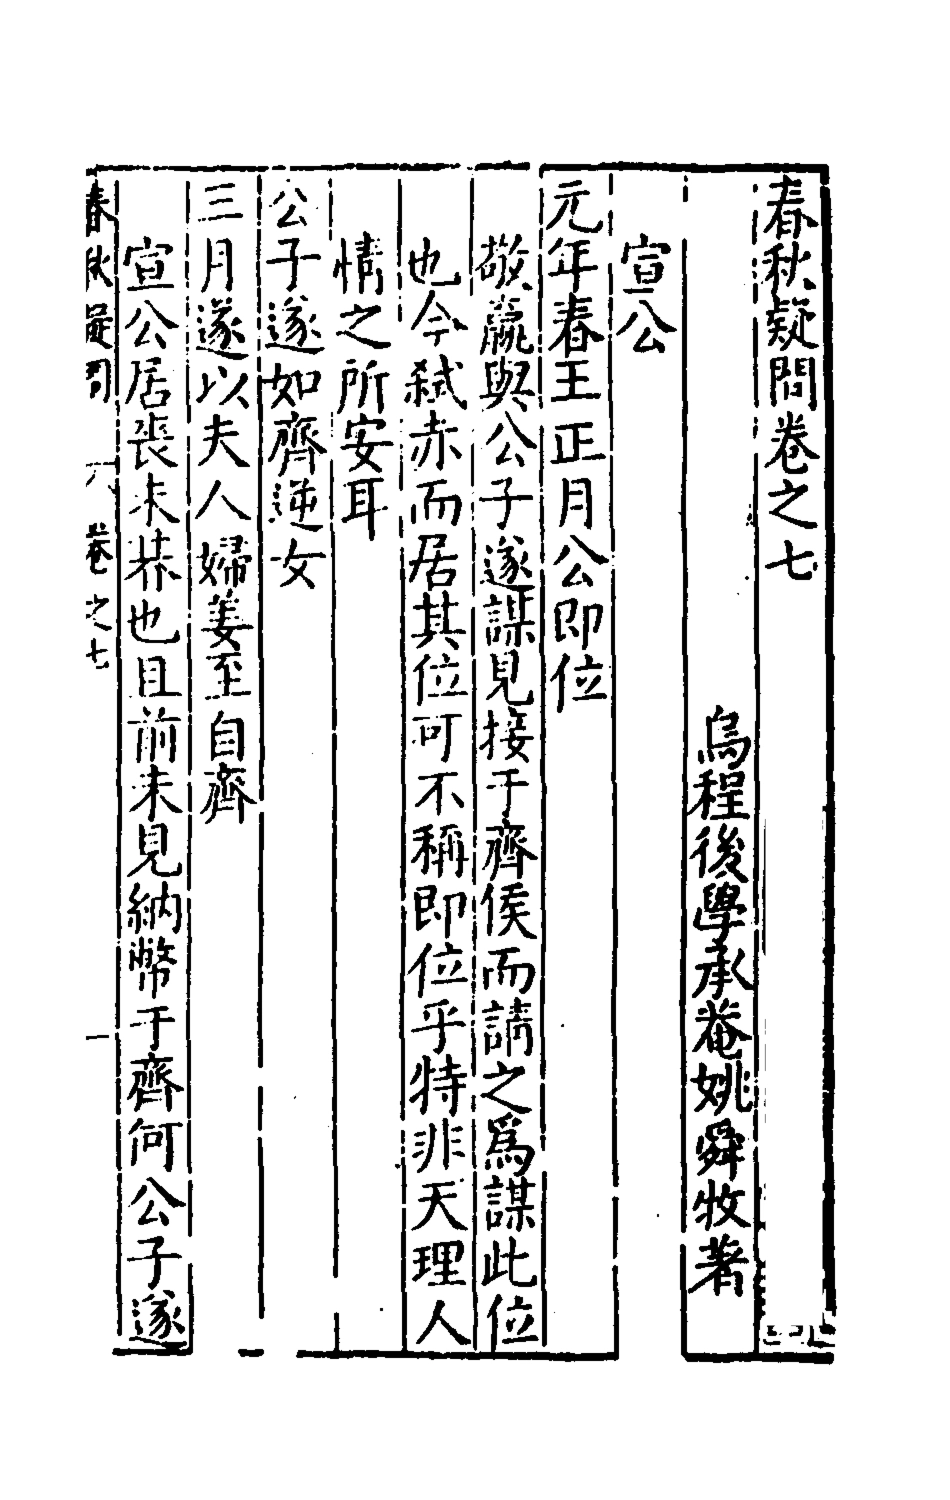 春秋疑問卷之七
烏程後學承菴姚舜牧著
宣公
元年春王正月公即位
敬嬴與公子遂謀見接于齊侯而請之爲謀此位
也今弒赤而居其位可不稱即位乎特非天理人
情之所安耳
公子遂如齊逆女
三月遂以夫人婦姜至自齊
宣公居喪未朞也且前未見納幣于齊何公子遂
春秋疑問
卷之七
一